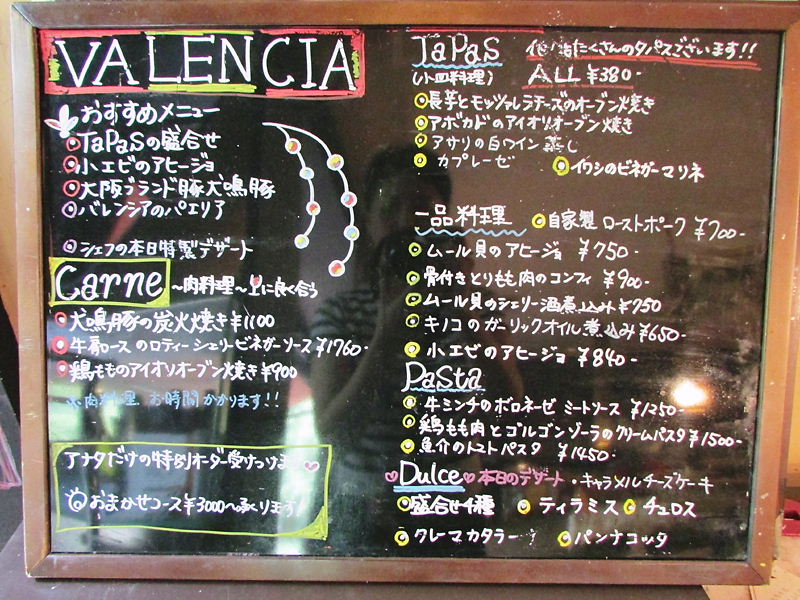 VALENCIA
おすすめメニュー
TaPaSの盛合せ
小エビのアヒージョ
大阪ブランド豚犬鳴豚
バレンシアのパエリア
シェフの本日特製デザート
Carne 〜肉料理〜 に良く合う
犬鳴豚の炭火焼き ¥1100
牛肩ロースのロティーシェリービネガーソース ¥1760-
鶏もものアイオリオーブン焼き ¥900
※肉料理 お時間かかります!!
アナタだけの特別オーダー受けつけます
おまかせコース¥3000〜承ります!
TaPaS 他にたくさんのタパスございます!!
(小皿料理) ALL ¥380-
長芋とモッツァレラチーズのオーブン焼き
アボカドのアイオリオーブン焼き
アサリの白ワイン蒸し
カプレーゼ イワシのビネガーマリネ
一品料理 自家製 ローストポーク ¥700-
ムール貝のアヒージョ ¥750-
骨付きとりもも肉のコンフィ ¥900-
ムール貝のシェリー酒煮込み ¥750
キノコのガーリックオイル煮込み ¥650-
小エビのアヒージョ ¥840-
PaSta
牛ミンチのボロネーゼ ミートソース ¥1250-
鶏もも肉とゴルゴンゾーラのクリームパスタ ¥1500-
魚介のトマトパスタ ¥1450-
Dulce 本日のデザート ・キャラメルチーズケーキ
盛合せ4種 ティラミス チュロス
クレーマカタラー パンナコッタ